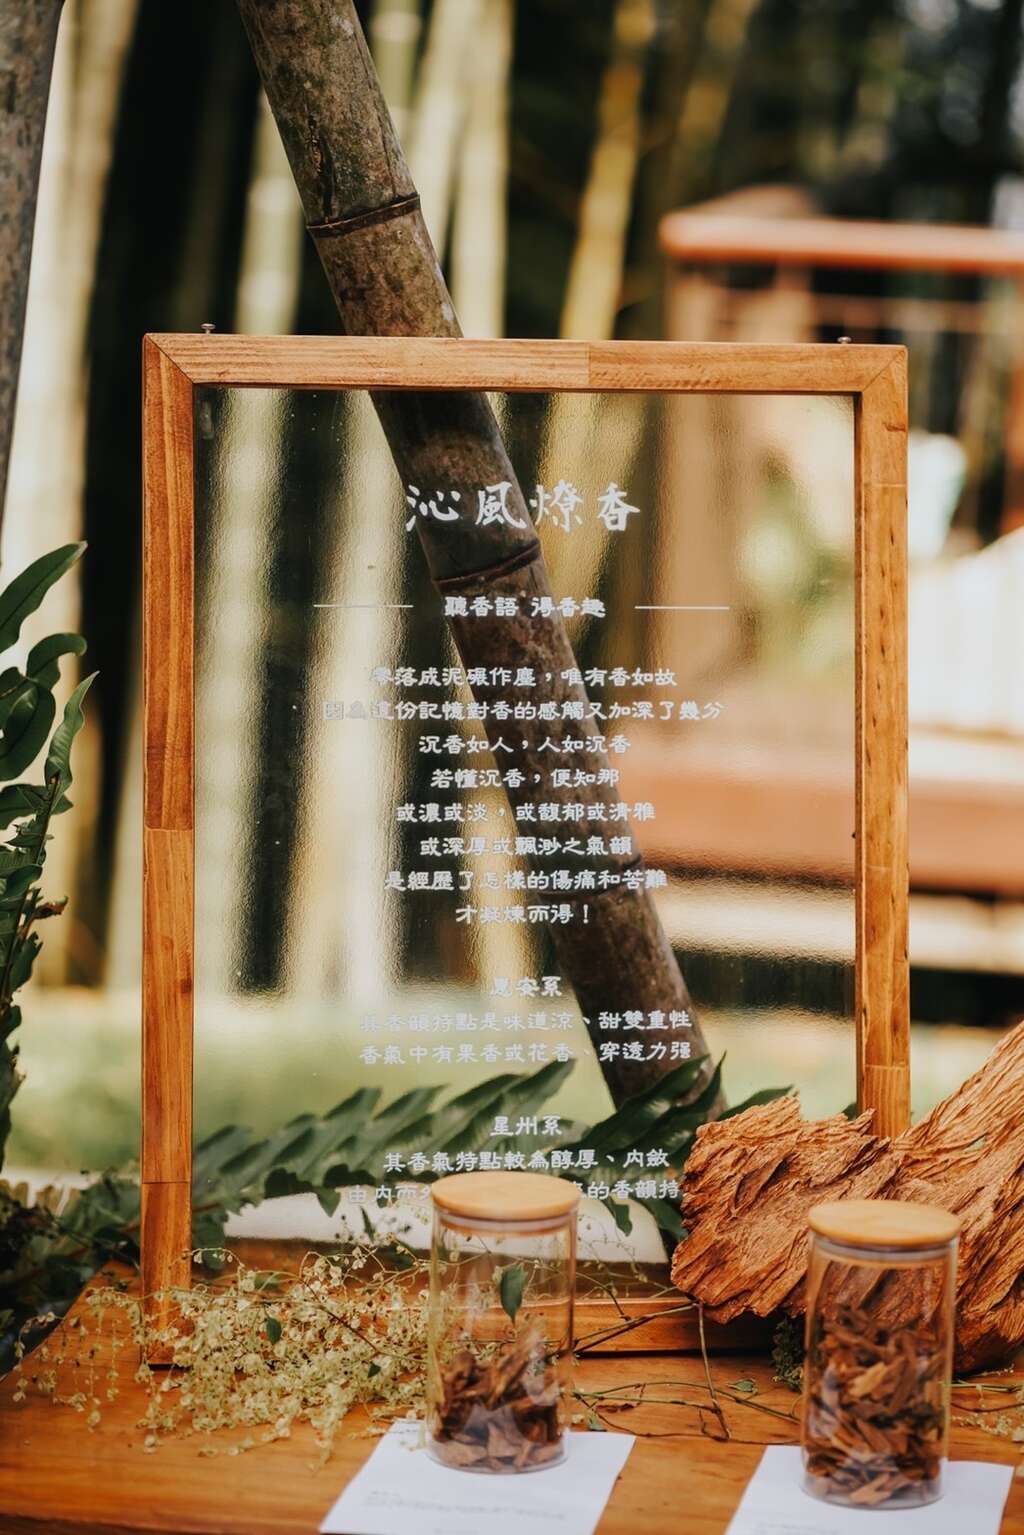 沁風燎香
聽香語 得香趣
零落成泥碾作塵，唯有香如故
因為這份記憶對香的感觸又加深了幾分
沉香如人，人如沉香
若懂沉香，便知那
或濃或淡，或馥郁或清雅
或深厚或飄渺之氣韻
是經歷了怎樣的傷痛和苦難
才凝煉而得！
惠安系
其香韻特點是味道涼、甜雙重性
香氣中有果香或花香、穿透力强
星州系
其香氣特點較為醇厚、內斂
由內而 的香韻持